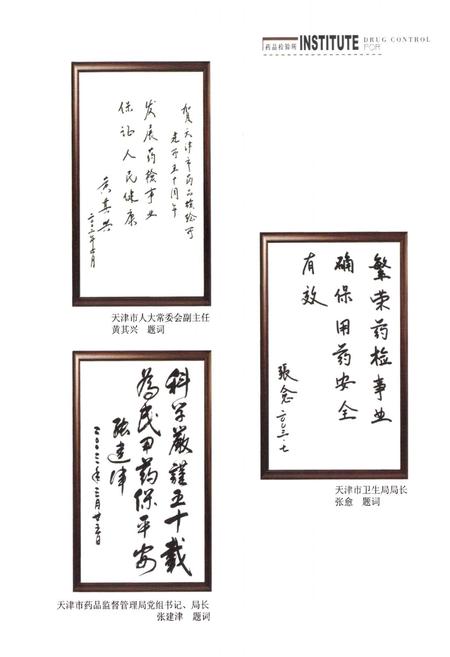 药品检验所 INSTITUTE DRUG CONTROL
FOR
贺天津市药品检验所
建所五十周年
发展药检事业
保证人民健康
黄其兴
天津市人大常委会副主任
黄其兴 题词
繁荣药检事业
确保用药安全
有效
張愈
天津市卫生局局长
张愈 题词
科学嚴謹五十載
為民用药保平安
张建津
天津市药品监督管理局党组书记、局长
张建津 题词